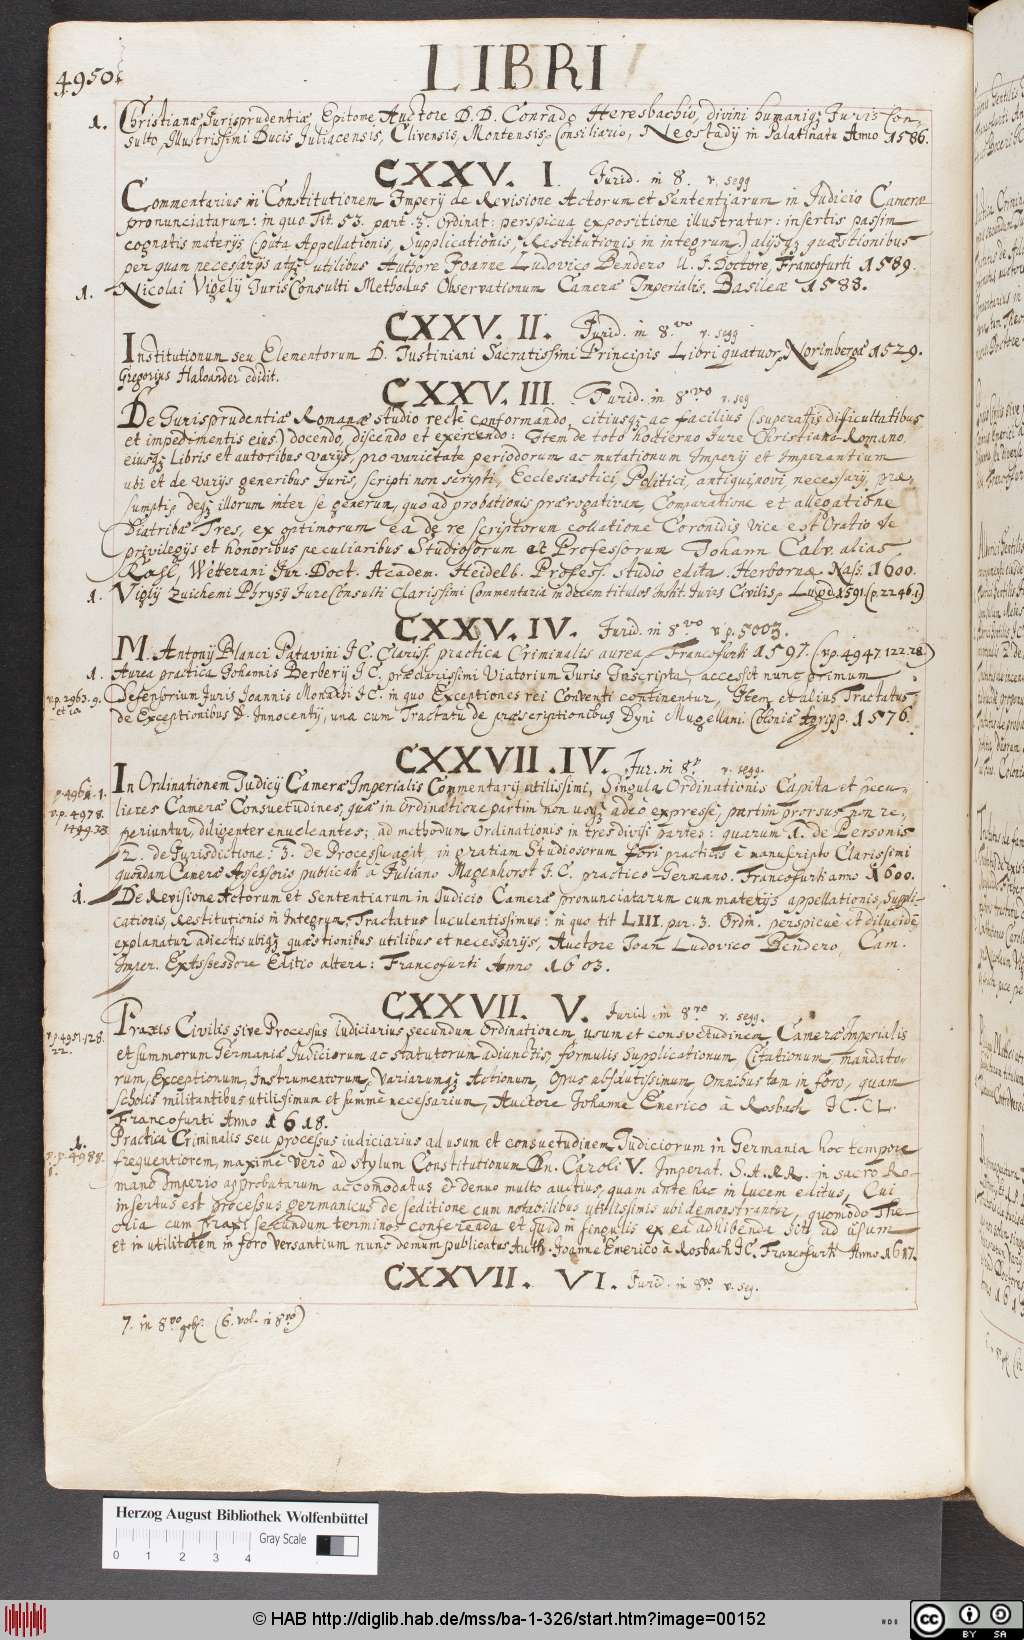 4950.
LIBRI
1. Christianæ Jurisprudentiæ Epitome Auctore D.D. Conrado Heresbachio, divini humaniq; Juris Con,
sulto, Illustrissimi Ducis Juliacensis, Clivensis, Montensis, Consiliario, Neostadÿ in Palatinatu Anno 1586.
CXXV. I. Jurid. in 8. v. segg
Commentarius in Constitutionem Imperÿ de Revisione Actorum et Sententiarum in Judicio Cameræ
pronunciatarum: in quo Tit. 53. part. 3. Ordinat: perspicua expositione illustratur: insertis passim
cognatis materÿs (puta Appellationis, Supplicationis, Restitutionis in integrum) alÿsq; quæstionibus
per quam necessarÿs atq; utilibus Authore Joanne Ludovico Bendero U. J. Doctore, Francofurti 1589.
1. Nicolai Vigelÿ JurisConsulti Methodus Observationum Cameræ Imperialis. Basileæ 1583.
CXXV. II. Jurid. in 8.vo v. segg
Institutionum seu Elementorum D. Justiniani Sacratissimi Principis Libri quatuor, Norimbergæ 1529.
Gregorius Haloander edidit.
CXXV. III. Jurid. in 8vo v. seg
De Jurisprudentiæ Romanæ studio recte conformando, citiusq; ac facilius (superatis difficultatibus
et impedimentis eius) docendo, discendo et exercendo: Item de toto hodierno Jure Christiano-Romano,
eiusq; Libris et autoribus varÿs, pro varietate periodorum ac mutationum Imperÿ et Imperantium
ubi et de varÿs generibus Juris, scripti non scripti, Ecclesiastici, Politici, antiqui, novi necessarÿ, præ-
sumptis deq; illorum inter se generum, quo ad probationis prærogativan, Comparatione et allegatione
Diatribæ Tres, ex optimorum ea de re scriptorum collatione Coronidis vice est Oratio de
privilegÿs et honoribus peculiaribus Studiosorum et Professorum Johann Calv. alias
Kahl, Wetterani Jur. Doct. Academ. Heidelb. Profess. studio edita. Herbornæ Nass. 1600.
1. Viglÿ Zuichemi Phrysÿ JureConsulti Clarissimi Commentaria in decem titulos Instit. Juris Civilis, Lugd. 1591. (p. 2246.1)
CXXV. IV. Jurid. in 8vo v. p. 5003.
M. Antonÿ Blanci Patavini J C. Clariss. practica Criminalis aurea Francofurti 1597. (v.p. 4947 122.28.)
1. Aurea practica Johannis Berberÿ J C. præclarissimi Viatorium Juris Inscripta, accessit nunc primum
v.p. 2963.9. et 10.
Defensorium Juris Joannis Monachi J C. in quo Exceptiones rei Conventi continentur, Item et alius Tractatus
de Exceptionibus D. Innocentÿ, una cum Tractatu de præscriptionibus Dyni Mugellani Coloniæ Agripp. 1576.
CXXVII. IV. Jur. in 8o v. segg.
v.p. 4962.1. v.p. 4978.
In Ordinationem Judicÿ Cameræ Imperialis Commentarÿ utilissimi, Singula Ordinationis Capita et pecu-
liares Cameræ Consuetudines, quæ in Ordinatione partim non usq; adeo expresse, partim prorsus non re,
periuntur, diligenter enucleantes; ad methodum Ordinationis in tres divisi partes: quarum 1. de Personis
2. de Jurisdictione: 3. de Processu agit, in gratiam Studiosorum fori practicis è manuscripto Clarissimi
quondam Cameræ Assessoris publicati a Juliano Magenhorst J. C. practico Germano. Francofurti anno 1600.
1. De Revisione Actorum et Sententiarum in Judicio Cameræ pronunciatarum cum materÿs appellationis, Suppli-
cationis, Restitutionis in Integrum, Tractatus luculentissimus: in quo tit LIII. par. 3. Ordin. perspicuè et dilucidè
explanatur adiectis ubiq; quæstionibus utilibus et necessarÿs, Auctore Joan Ludovico Bendero, Cam.
Imper. ExAssessore Editio altera: Francofurti Anno 1603.
CXXVII. V. Jurid. in 8.vo v. segg.
v.p. 4951.128. 22.
Praxis Civilis sive Processus Iudiciarius secundum Ordinationem, usum et consvetudinem Cameræ Imperialis
et summorum Germaniæ Judiciorum ac statutorum adiunctis, formulis Supplicationum Citationum mandato-
rum, Exceptionum, Instrumentorum, Variarumq; Actionum, Opus absolutissimum, omnibus tam in foro, quam
scholis militantibus utilissimum et summè necessarium, Auctore Johanne Emerico à Rosbach JC. CL.
Francofurti Anno 1618.
1. Practica Criminalis seu processus iudiciarius ad usum et consuetudinem Judiciorum in Germania hoc tempore
v. p. 4988.
frequentiorem, maximè verò ad stylum Constitutionum Dn. Caroli V. Imperat. S. A. RR. in sacro Ro-
mano Imperio approbatarum accomodatus & denuo multo auctius, quam ante hac in lucem editus, Cui
insertus est processus germanicus de seditione cum notabilibus utilissimis ubi demonstrantur, quomodo The-
oria cum praxi secundum terminos conferenda et quid in singulis ex ea adhibenda sit, ad usum
et in utilitatem in foro versantium nunc demum publicatus Auth. Joanne Emerico à Rosbach JC. Francofurti Anno 1617.
CXXVII. VI. Jurid. in 8vo v. seg.
7. in 8vo (6. vol. in 8vo)
Herzog August Bibliothek Wolfenbüttel
Gray Scale
0 1 2 3 4
© HAB http://diglib.hab.de/mss/ba-1-326/start.htm?image=00152
cc BY SA